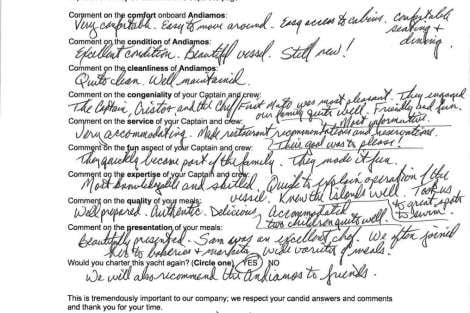 Comment on the comfort onboard Andiamos:
Very comfortable. Easy to move around. Easy access to cabins. comfortable seating + dining.
Comment on the condition of Andiamos:
Excellent condition. Beautiful vessel. Still new!
Comment on the cleanliness of Andiamos:
Quite clean. Well maintained.
Comment on the congeniality of your Captain and crew:
The Captain, and the Chef/First Mate was most pleasant. They engaged
our family quite well. Friendly and fun.
Comment on the service of your Captain and crew: Most informative.
Very accommodating. Made restaurant recommendations and reservations.
Comment on the fun aspect of your Captain and crew: Their goal was to please!
They quickly became part of the family. They made it fun.
Comment on the expertise of your Captain and crew:
Most knowledgeable and skilled. to explain operation of the
vessil. Knew the islands well. Took us
Comment on the quality of your meals: to great spots
Well prepared. Authentic. Delicious. Accommodated to swim.
two children quite well.
Comment on the presentation of your meals:
Beautifully presented. Sam was an excellent chef. We often joined
her to bakeries + markets. Wide variety of meals!
Would you charter this yacht again? (Circle one) YES NO
We will also recommend the Andiamos to friends.
This is tremendously important to our company; we respect your candid answers and comments
and thank you for your time.